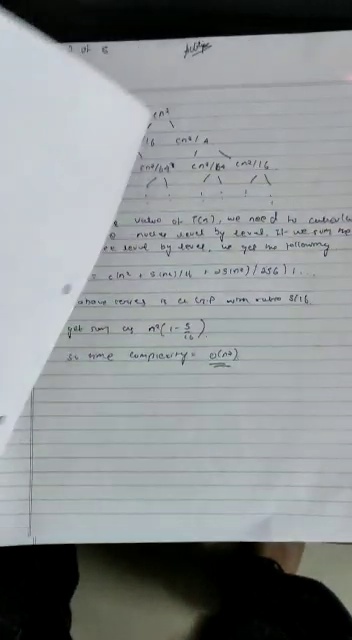 of 8
cn²
16 cn²/4
cn²/64 cn²/64 cn²/16
value of T(n), we need to calculate
nodes level by level. If we sum the
level by level, we get the following
= c(n² + 5(n²)/16 + 25(n²)/256) + ...
above series is a G.P with ratio 5/16
get sum as n²(1 - 5/16)
so time complexity = O(n²)